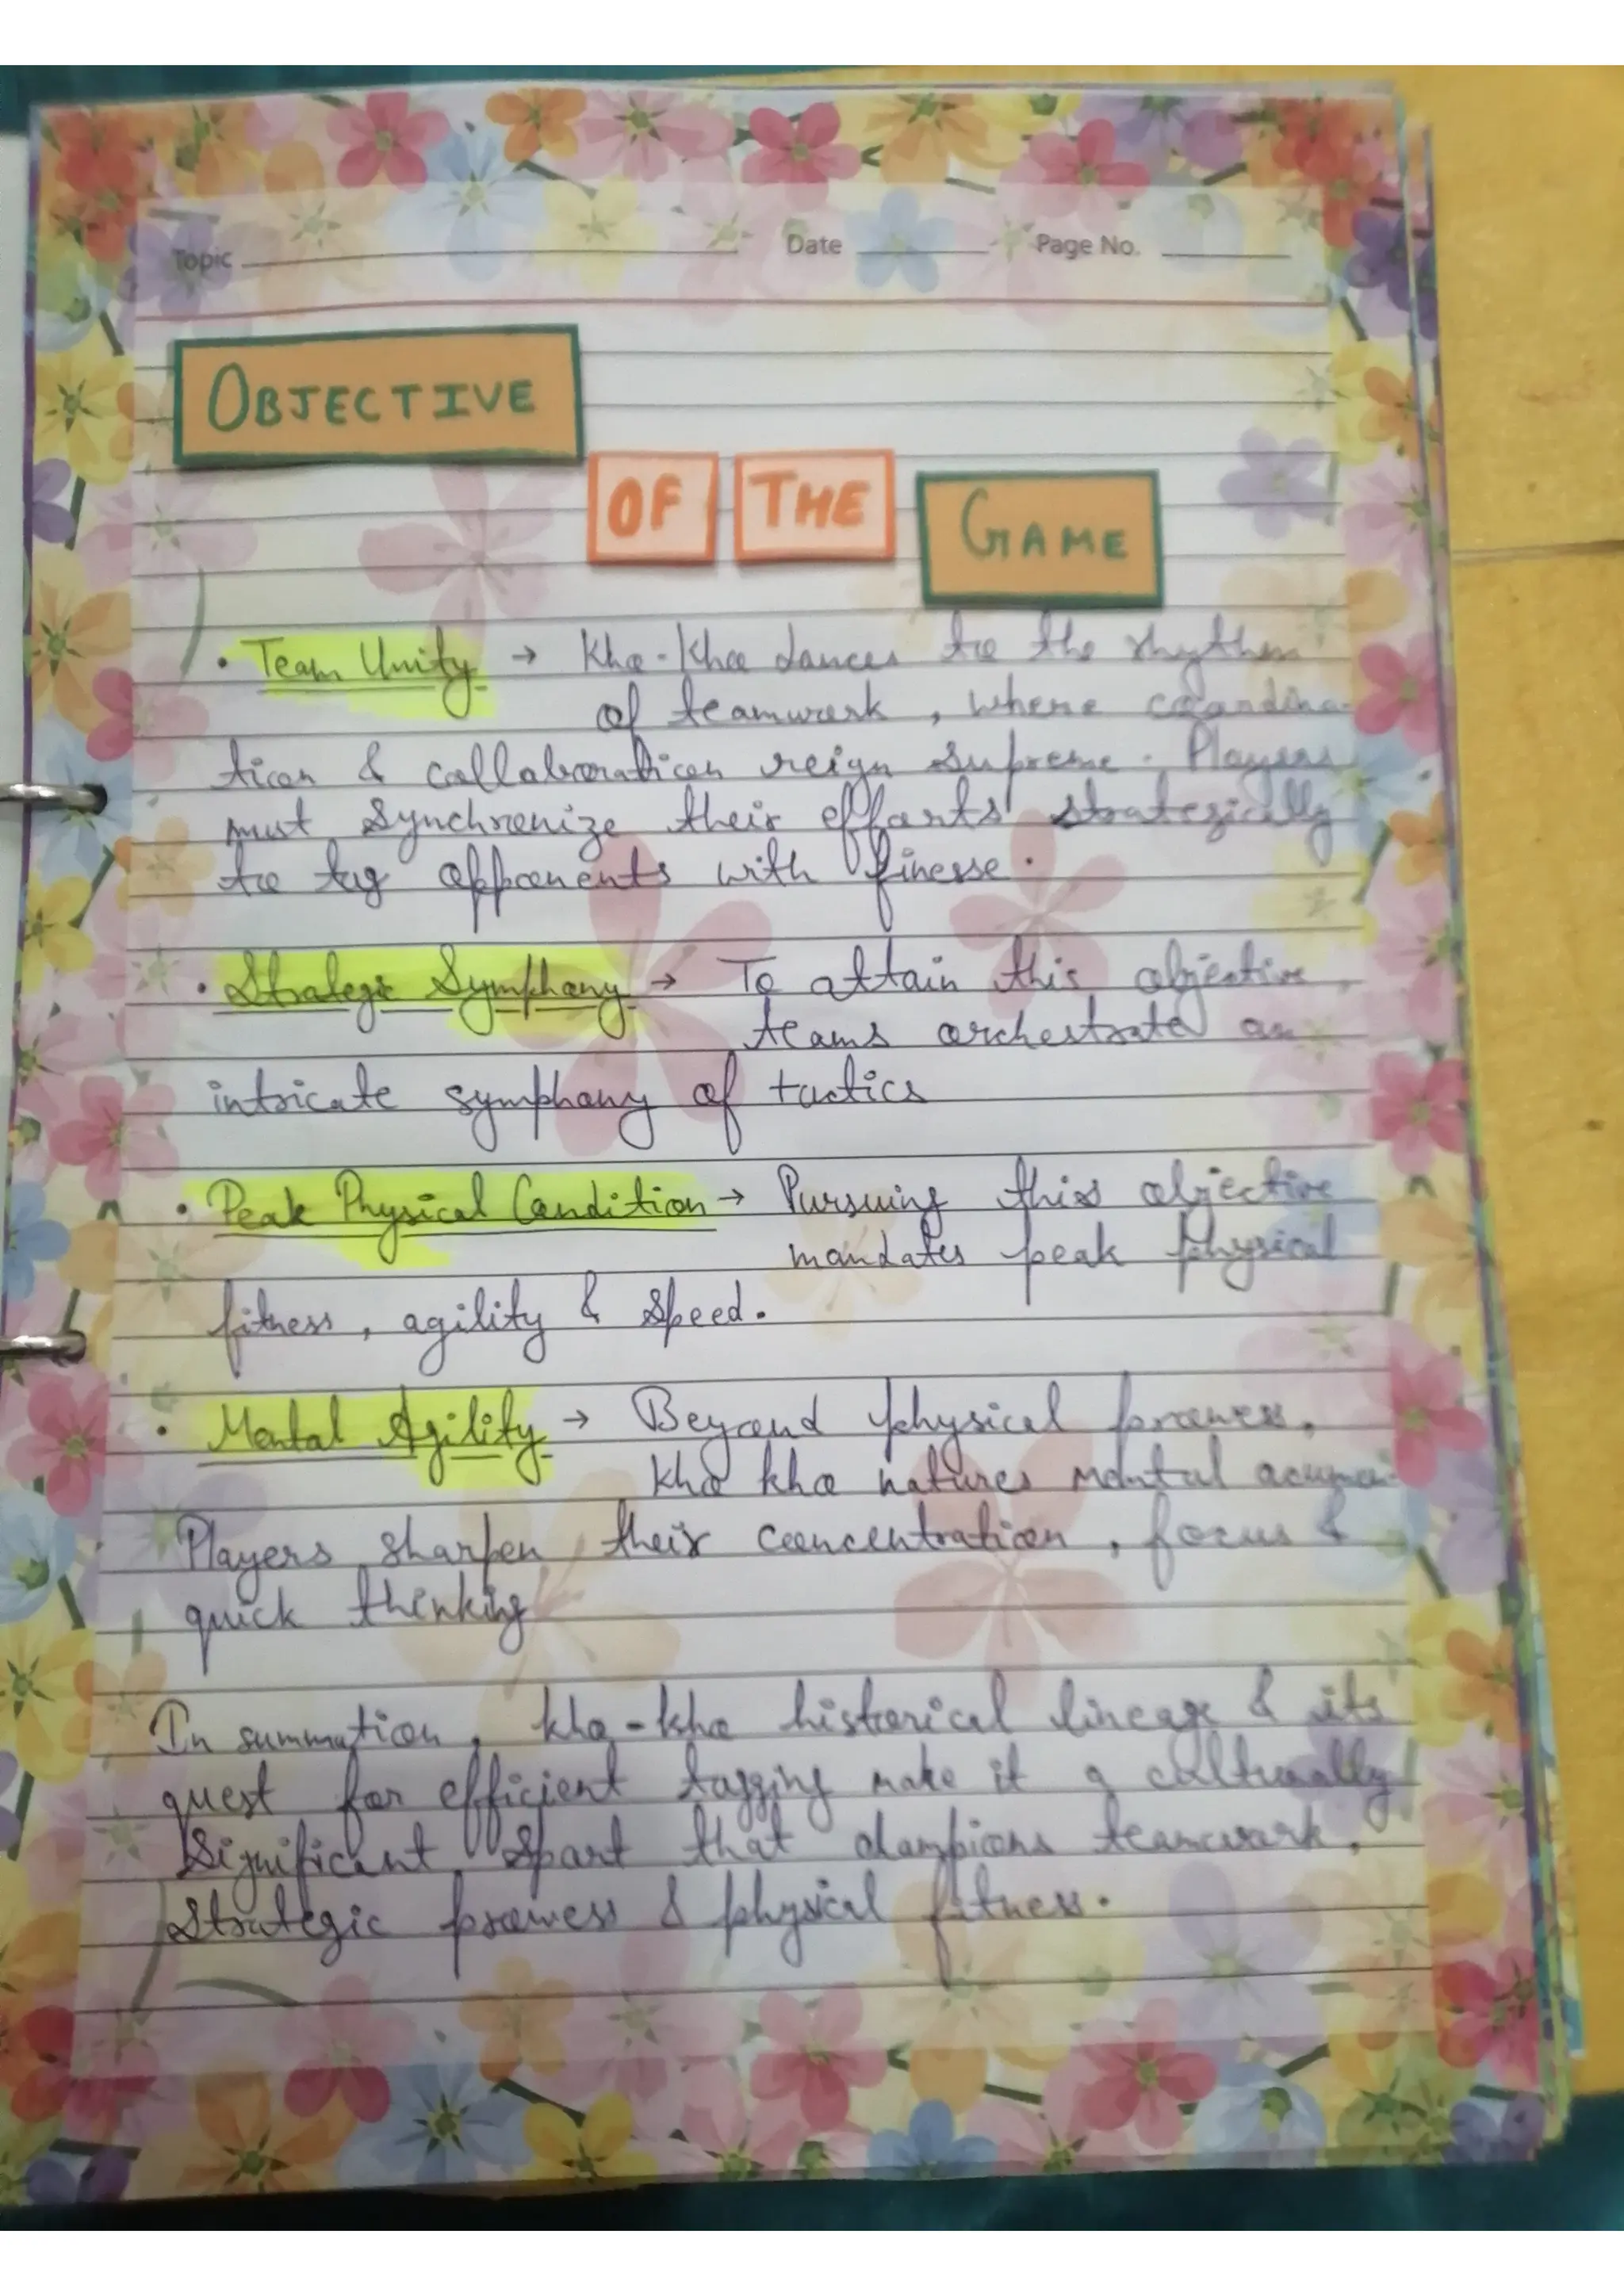 Topic Date Page No.
OBJECTIVE
OF THE GAME
• Team Unity → Kho-Kho dances to the rhythm
of teamwork, where coordina-
tion & collaboration reign supreme. Players
must synchronize their efforts strategically
to tag opponents with finesse.
• Strategic Symphony → To attain this objective,
teams orchestrate an
intricate symphony of tactics
• Peak Physical Condition → Pursuing this objective
mandates peak physical
fitness, agility & speed.
• Mental Agility → Beyond physical prowess,
kho kho natures mental
Players sharpen their concentration, focus &
quick thinking
In summation, kho-kho historical lineage & its
quest for efficient tagging make it a culturally
significant sport that champions teamwork,
strategic prowess & physical fitness.